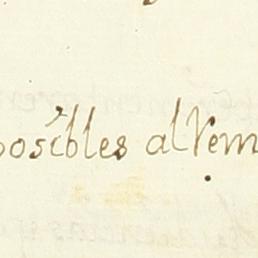 posibles al Rem